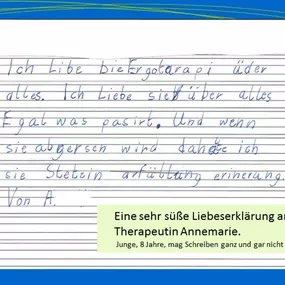 Ich Libe die Ergotarapi üder
alles. Ich Liebe sie über alles
Egal was pasirt. Und wenn
sie abgersen wird dahate ich
sie Stetein anfüllung erinerung.
Von A.
Eine sehr süße Liebeserklärung an
Therapeutin Annemarie.
Junge, 8 Jahre, mag Schreiben ganz und gar nicht